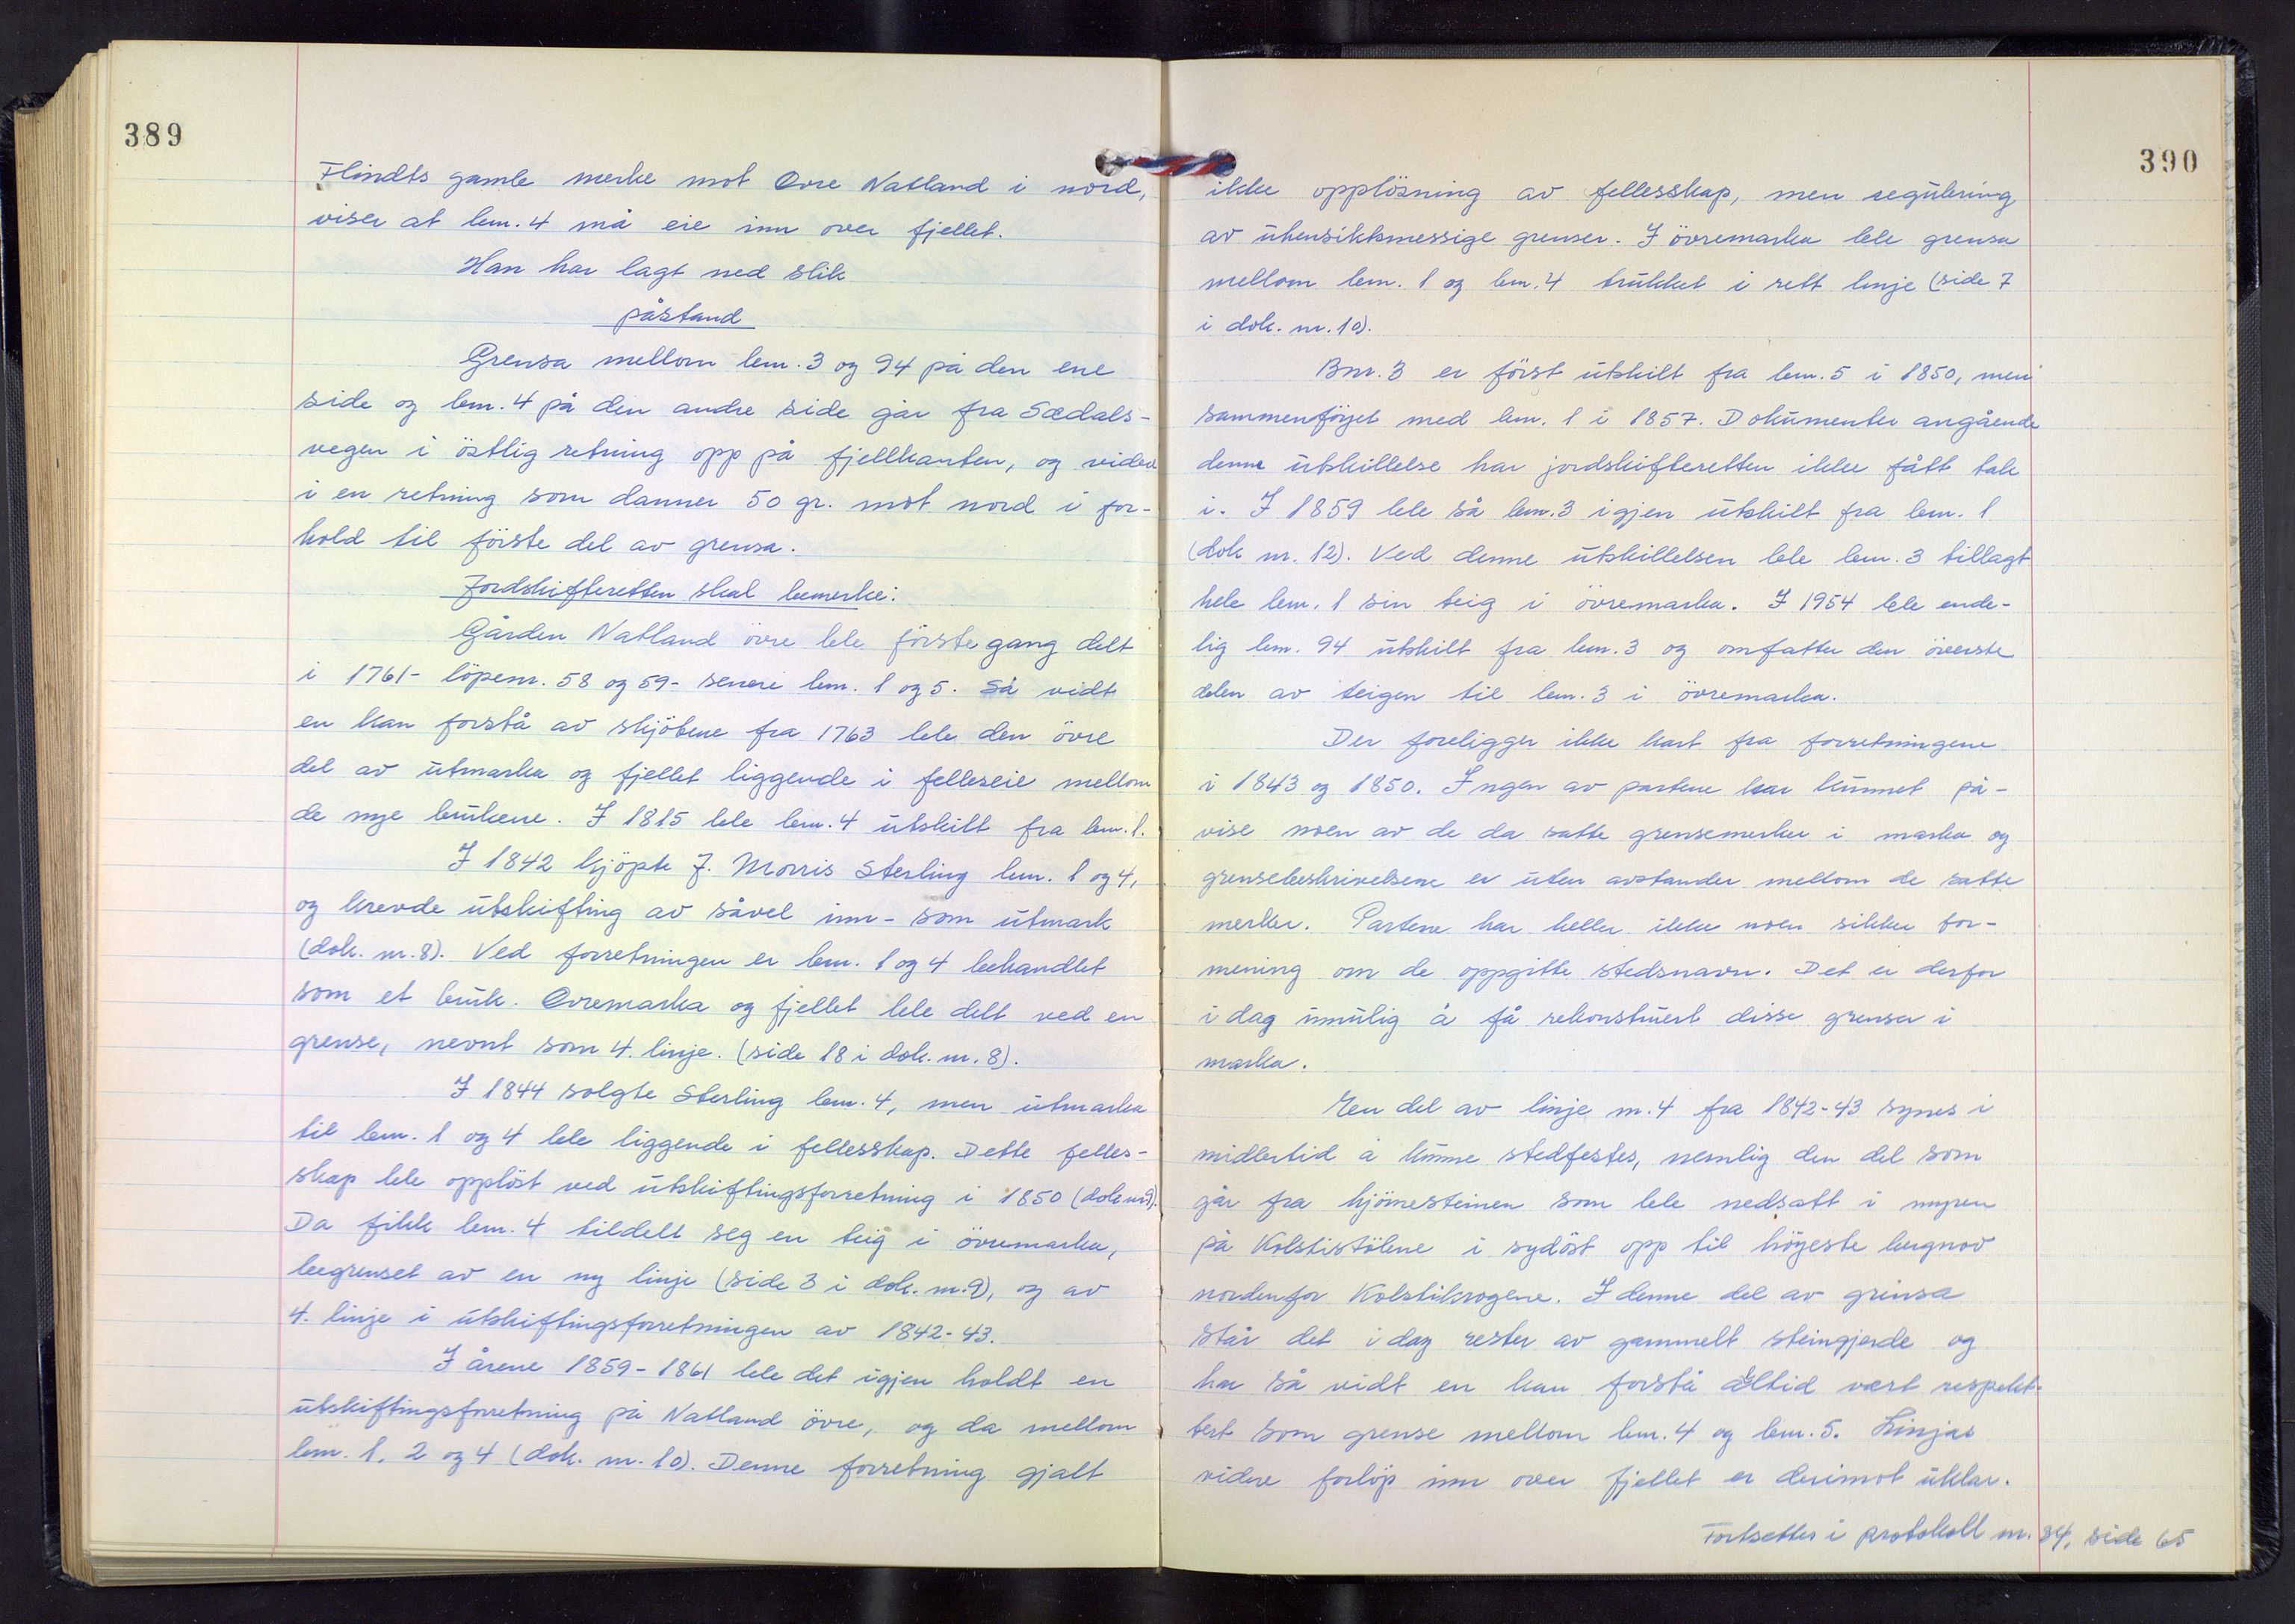 389
Flindts gamle merke mot Övre Natland i nord,
viser at bnr. 4 må eie inn over fjellet.
Han har lagt ned slik
påstand
Grensa mellom bnr. 3 og 94 på den ene
side og bnr. 4 på den andre side går fra Sædals-
vegen i östlig retning opp på fjellkanten, og videre
i en retning som danner 50 gr. mot nord i for-
hold til förste del av grensa.
Jordskifteretten skal bemerke:
Gården Natland övre ble förste gang delt
i 1761 - löpenr. 58 og 59 - senere bnr. 1 og 5. Så vidt
en kan forstå av skjötene fra 1763 ble den övre
del av utmarka og fjellet liggende i felleseie mellom
de nye brukene. I 1815 ble bnr. 4 utskilt fra bnr. 1.
I 1842 kjöpte J. Morris Sterling bnr. 1 og 4,
og krevde utskifting av såvel inn- som utmark
(dok. nr. 8). Ved forretningen er bnr. 1 og 4 behandlet
som et bruk. Övremarka og fjellet ble delt ved en
grense, nevnt som 4. linje. (side 18 i dok. nr. 8).
I 1844 solgte Sterling bnr. 4, men utmarka
til bnr. 1 og 4 ble liggende i fellesskap. Dette felles-
skap ble opplöst ved utskiftingsforretning i 1850 (dok nr 9).
Da fikk bnr. 4 tildelt seg en teig i övremarka,
begrenset av en ny linje (side 3 i dok. nr. 9), og av
4. linje i utskiftingsforretningen av 1842-43.
I årene 1859-1861 ble det igjen holdt en
utskiftingsforretning på Natland övre, og da mellom
bnr. 1, 2 og 4 (dok. nr. 10). Denne forretning gjalt
390
ikke opplösning av fellesskap, men regulering
av uhensiktsmessige grenser. I övremarka ble grensa
mellom bnr. 1 og bnr. 4 trukket i rett linje (side 7
i dok. nr. 10).
Bnr. 3 er först utskilt fra bnr. 5 i 1850, men
sammenföyet med bnr. 1 i 1857. Dokumenter angående
denne utskillelse har jordskifteretten ikke fått tak
i. I 1859 ble så bnr. 3 igjen utskilt fra bnr. 1
(dok nr. 12). Ved denne utskillelsen ble bnr. 3 tillagt
hele bnr. 1 sin teig i övremarka. I 1954 ble ende-
lig bnr. 94 utskilt fra bnr. 3 og omfatter den överste
delen av teigen til bnr. 3 i övremarka.
Der foreligger ikke kart fra forretningene
i 1843 og 1850. Ingen av partene har kunnet på-
vise noen av de da satte grensemerker i marka og
grensebeskrivelsene er uten avstander mellom de satte
merker. Partene har heller ikke noen sikker for-
mening om de oppgitte stedsnavn. Det er derfor
i dag umulig å få rekonstruert disse grenser i
marka.
En del av linje nr. 4 fra 1842-43 synes i
midlertid å kunne stedfestes, nemlig den del som
går fra hjörnesteinen som ble nedsatt i myren
på Kolstistölene i sydöst opp til högeste bergnov
nordenfor Kolstikrogene. I denne del av grensa
står det i dag rester av gammelt steingjerde og
har så vidt en kan forstå alltid vært respekt-
tert som grense mellom bnr. 4 og bnr. 5. Linjas
videre forlöp inn over fjellet er derimot uklar.
Fortsettes i protokoll nr. 34, side 65